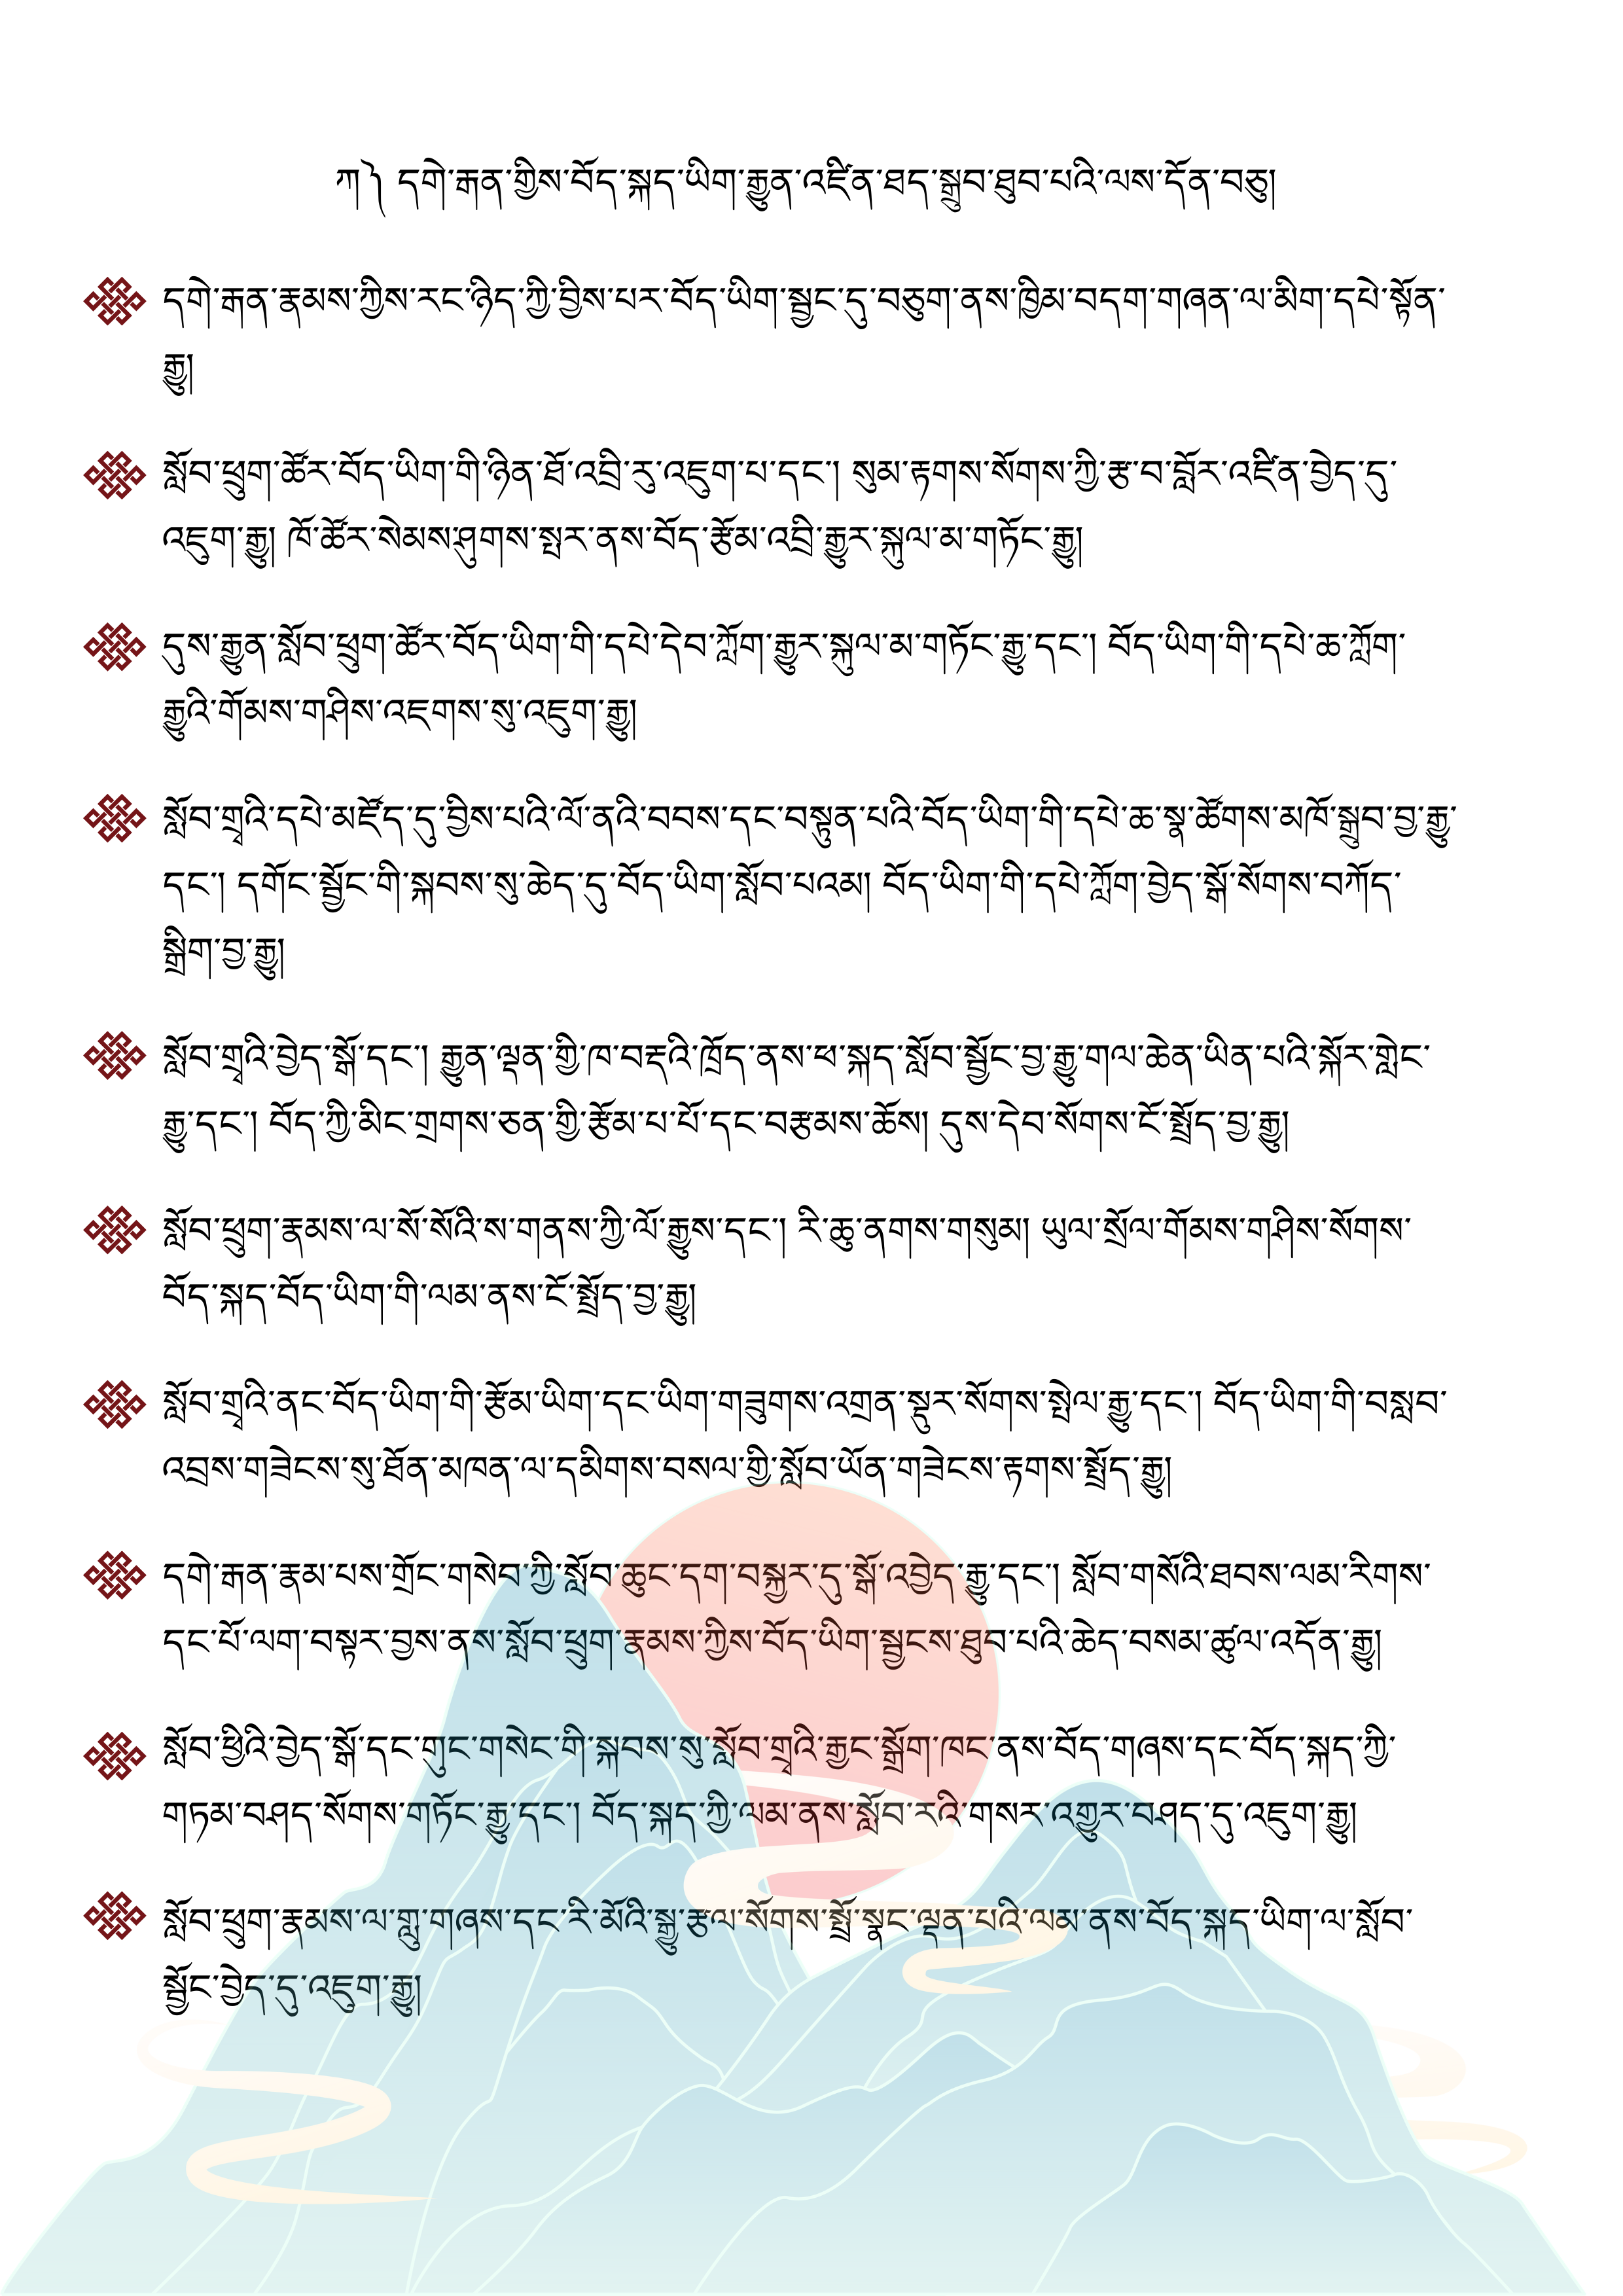 ཀ༽ དགེ་རྒན་གྱིས་བོད་སྐད་ཡིག་རྒྱུན་འཛིན་ཐད་སྒྲུབ་ཐུབ་པའི་ལས་དོན་བཅུ།
དགེ་རྒན་རྣམས་ཀྱིས་རང་ཉིད་ཀྱི་བྱིས་པར་བོད་ཡིག་སྦྱང་དུ་བཅུག་ནས་ཁྱིམ་བདག་གཞན་ལ་མིག་དཔེ་སྟོན་
རྒྱུ།
སློབ་ཕྲུག་ཚོར་བོད་ཡིག་གི་ཉིན་ཐོ་འབྲི་རུ་འཇུག་པ་དང་། སུམ་རྟགས་སོགས་ཀྱི་རྩ་བ་བློར་འཛིན་བྱེད་དུ་
འཇུག་རྒྱུ། ཁོ་ཚོར་སེམས་ཤུགས་སྤར་ནས་བོད་རྩོམ་འབྲི་རྒྱུར་སྐུལ་མ་གཏོང་རྒྱུ།
དུས་རྒྱུན་སློབ་ཕྲུག་ཚོར་བོད་ཡིག་གི་དཔེ་དེབ་ཀློག་རྒྱུར་སྐུལ་མ་གཏོང་རྒྱུ་དང་། བོད་ཡིག་གི་དཔེ་ཆ་ཀློག་
རྒྱུའི་གོམས་གཤིས་འཇགས་སུ་འཇུག་རྒྱུ།
སློབ་གྲྭའི་དཔེ་མཛོད་དུ་བྱིས་པའི་ལོ་ནའི་བབས་དང་བསྟུན་པའི་བོད་ཡིག་གི་དཔེ་ཆ་སྣ་ཚོགས་མཁོ་སྒྲུབ་བྱ་རྒྱུ་
དང་། དགོང་སྦྱོང་གི་སྐབས་སུ་ཆེད་དུ་བོད་ཡིག་སློབ་པའམ། བོད་ཡིག་གི་དཔེ་ཀློག་བྱེད་སྒོ་སོགས་བཀོད་
སྒྲིག་བྱ་རྒྱུ།
སློབ་གྲྭའི་བྱེད་སྒོ་དང་། རྒྱུན་ལྡན་གྱི་ཁ་བརྡའི་ཁྲོད་ནས་ཕ་སྐད་སློབ་སྦྱོང་བྱ་རྒྱུ་གལ་ཆེན་ཡིན་པའི་སྐོར་གླེང་
རྒྱུ་དང་། བོད་ཀྱི་མིང་གྲགས་ཅན་གྱི་རྩོམ་པ་པོ་དང་བརྩམས་ཆོས། དུས་དེབ་སོགས་ངོ་སྤྲོད་བྱ་རྒྱུ།
སློབ་ཕྲུག་རྣམས་ལ་སོ་སོའི་ས་གནས་ཀྱི་ལོ་རྒྱུས་དང་། རི་ཆུ་ནགས་གསུམ། ཡུལ་སྲོལ་གོམས་གཤིས་སོགས་
བོད་སྐད་བོད་ཡིག་གི་ལམ་ནས་ངོ་སྤྲོད་བྱ་རྒྱུ།
སློབ་གྲྭའི་ནང་བོད་ཡིག་གི་རྩོམ་ཡིག་དང་ཡིག་གཟུགས་འགྲན་སྡུར་སོགས་སྤེལ་རྒྱུ་དང་། བོད་ཡིག་གི་བསླབ་
འབྲས་གཟེངས་སུ་ཐོན་མཁན་ལ་དམིགས་བསལ་གྱི་སློབ་ཡོན་གཟེངས་རྟགས་སྤྲོད་རྒྱུ།
དགེ་རྒན་རྣམ་པས་གྲོང་གསེབ་ཀྱི་སློབ་ཆུང་དག་བསྐྱར་དུ་སྒོ་འབྱེད་རྒྱུ་དང་། སློབ་གསོའི་ཐབས་ལམ་རིགས་
དང་པོ་ལག་བསྟར་བྱས་ནས་སློབ་ཕྲུག་རྣམས་ཀྱིས་བོད་ཡིག་སྦྱངས་ཐུབ་པའི་ཆེད་བསམ་ཚུལ་འདོན་རྒྱུ།
སློབ་ཕྱིའི་བྱེད་སྒོ་དང་གུང་གསེང་གི་སྐབས་སུ་སློབ་གྲྭའི་རྒྱང་སྒྲོག་ཁང་ནས་བོད་གཞས་དང་བོད་སྐད་ཀྱི་
གཏམ་བཤད་སོགས་གཏོང་རྒྱུ་དང་། བོད་སྐད་ཀྱི་ལམ་ནས་སློབ་རའི་གསར་འགྱུར་བཤད་དུ་འཇུག་རྒྱུ།
སློབ་ཕྲུག་རྣམས་ལ་གླུ་གཞས་དང་རི་མོའི་སྒྱུ་རྩལ་སོགས་སྤྲོ་སྣང་ལྡན་པའི་ལམ་ནས་བོད་སྐད་ཡིག་ལ་སློབ་
སྦྱོང་བྱེད་དུ་འཇུག་རྒྱུ།